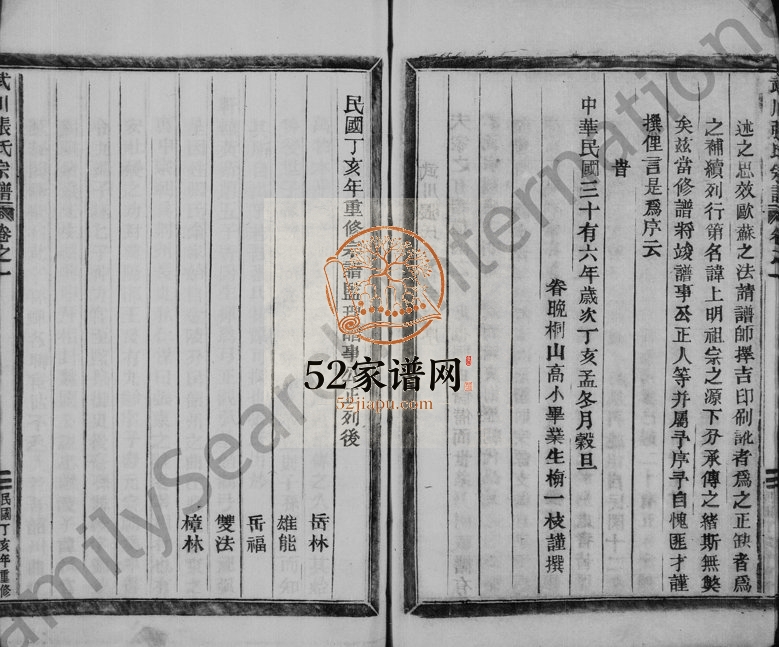 述之思效歐蘇之法請譜師擇吉印刷訛者爲之正缺者爲
之補續列行第名諱上明祖宗之源下分承傳之緒斯無獘
矣玆當修譜將竣譜事公正人等并屬予序予自愧匪才謹
撰俚言是爲序云
旹
中華民國三十有六年歲次丁亥孟冬月穀旦
眷晚桐山高小畢業生梅一枝謹撰
民國丁亥年重修宗譜監理譜事公正列後
岳林
雄能
岳福
雙法
樟林
武川張氏宗譜
卷之一
民國丁亥年重修
52家谱网
52jiapu.com
FamilySearch International